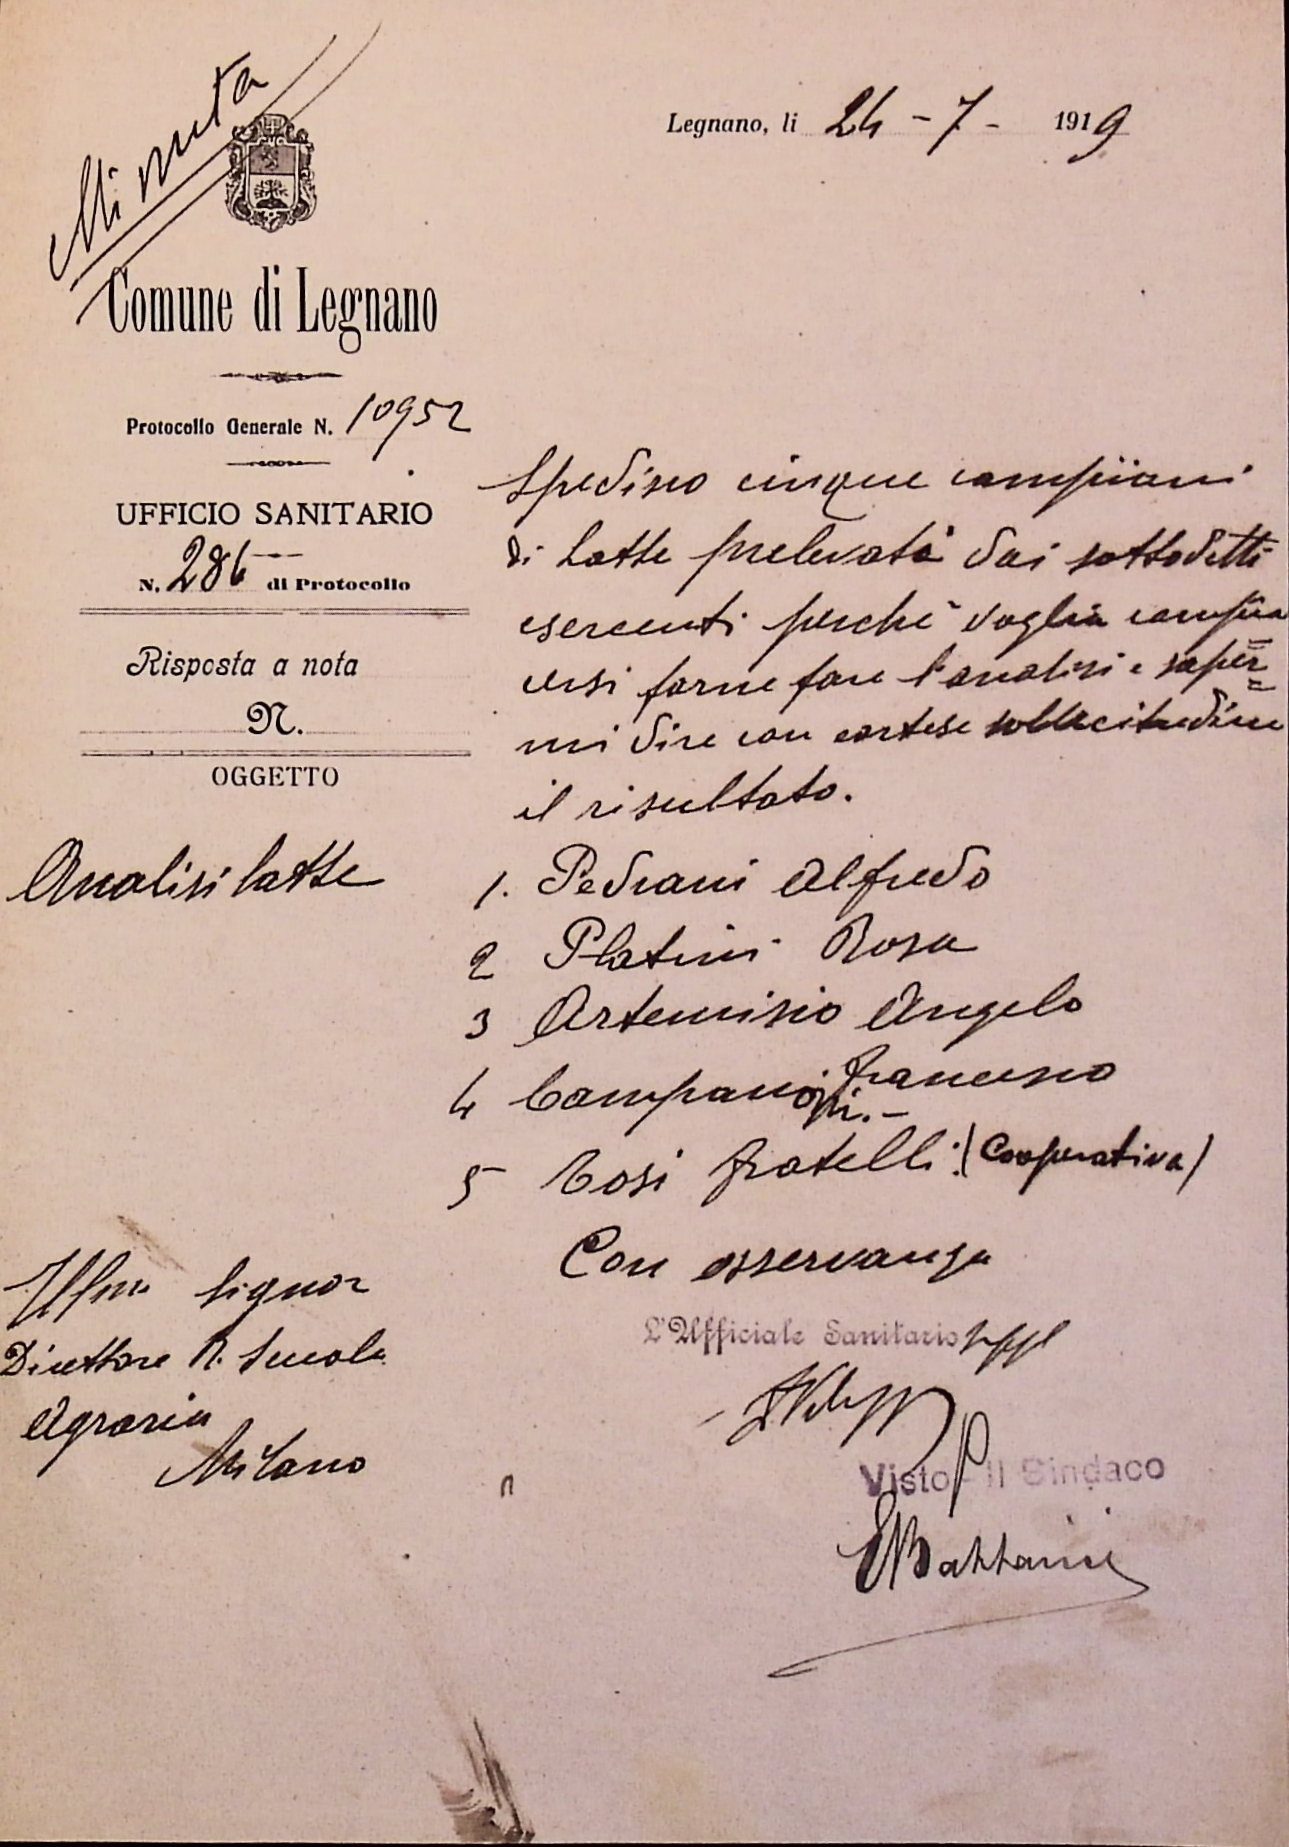 Minuta
Legnano, li 24 - 7 - 1919
Comune di Legnano
Protocollo Generale N. 10952
UFFICIO SANITARIO
N. 286 di Protocollo
Risposta a nota
N.
OGGETTO
Analisi latte
Spedisco cinque campioni
di latte prelevati dai sottodetti
esercenti perchè voglia compia=
cersi farne fare l'analisi e saper=
mi dire con cortese sollecitudine
il risultato.
1. Pedrani Alfredo
2 Platini Rosa
3 Artemisio Angelo
4 Campanoni Francesco
5 Tosi fratelli (Cooperativa)
Con osservanza
L'Ufficiale Sanitario suppl
Visto - Il Sindaco
Illmo Signor
Direttore R. Scuola
Agraria
Milano